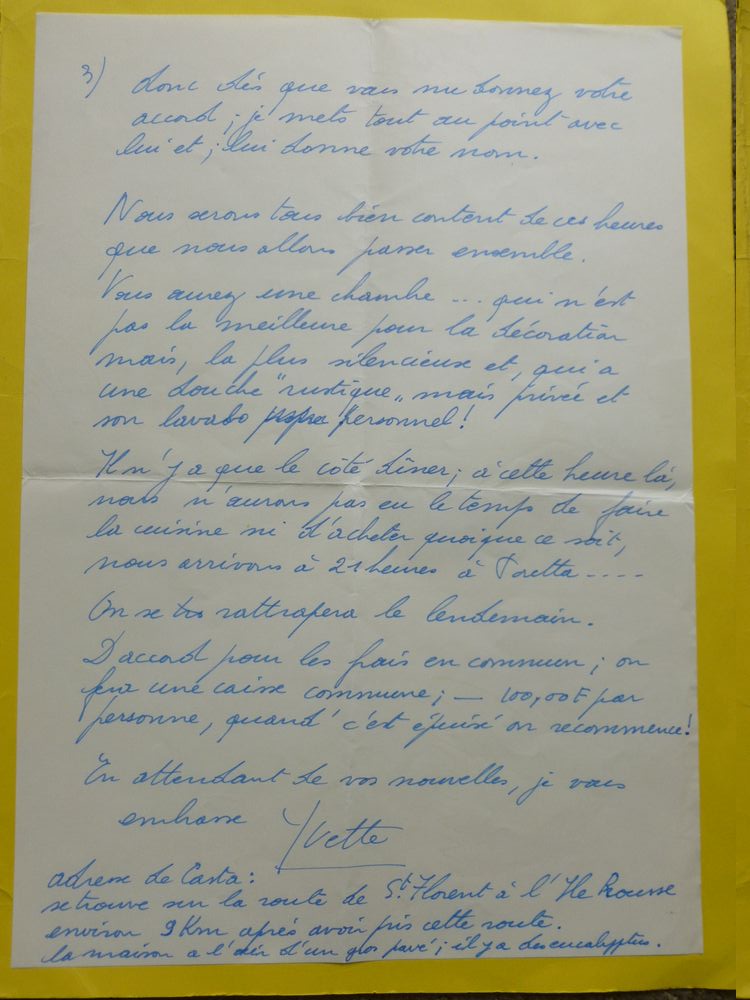 3) donc dés que vous me donnez votre
accord ; je mets tout au point avec
lui et ; lui donne votre nom.
Nous serons tous bien content de ces heures
que nous allons passer ensemble.
Vous aurez une chambre ... qui n'est
pas la meilleure pour la décoration
mais, la plus silencieuse et, qui a
une douche "rustique" mais privée et
son lavabo personnel !
Il n'y a que le côté dîner ; à cette heure là,
nous n'aurons pas eu le temps de faire
la cuisine ni d'acheter quoique ce soit,
nous arrivons à 21 heures à Poretta ----
On se rattrapera le lendemain.
D'accord pour les frais en commun ; on
fera une caisse commune ; — 100,00F par
personne, quand c'est épuisé on recommence !
En attendant de vos nouvelles, je vous
embrasse Yvette
adresse de Casta :
se trouve sur la route de St. Florent à l'Ile Rousse
environ 9 Km aprés avoir pris cette route.
la maison a l'air d'un gros pavé ; il y a des eucalyptus.